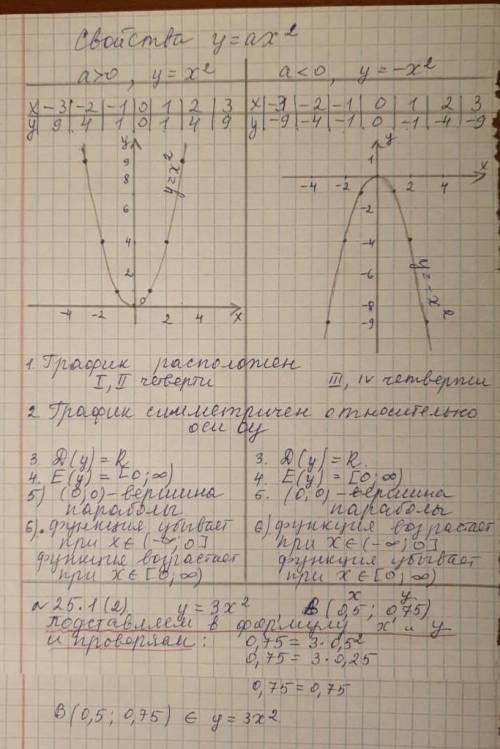 Свойства y=ax²
a>0, y=x²
a<0, y=-x²
x -3 -2 -1 0 1 2 3
y 9 4 1 0 1 4 9
x -3 -2 -1 0 1 2 3
y -9 -4 -1 0 -1 -4 -9
y
9
8
6
4
2
-4 -2 0 2 4 x
y=x²
y
1
-4 -2 2 4 x
-2
-4
-6
-8
-9
y=-x²
1. График расположен
I, II четверти
III, IV четверти
2. График симметричен относительно
оси Oy
3. D(y)=R
4. E(y)=[0;∞)
5) (0;0)-вершина
параболы
6). функция убывает
при x∈(-∞;0]
функция возрастает
при x∈[0;∞)
3. D(y)=R.
4. E(y)=[0;∞)
5. (0;0)-вершина
параболы
6) функция возрастает
при x∈(-∞;0]
функция убывает
при x∈[0;∞)
x y
№25.1(2) y=3x², B(0,5; 0,75)
подставляем в формулу x и y
и проверяем: 0,75=3·0,5²
0,75=3·0,25
0,75=0,75
B(0,5; 0,75) ∈ y=3x²